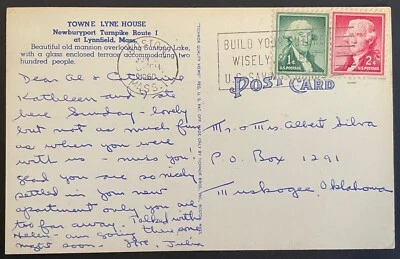 TOWNE LYNE HOUSE
Newburyport Turnpike Route 1
at Lynnfield, Mass.
Beautiful old mansion overlooking Suntaug Lake,
with a glass enclosed terrace accommodating two
hundred people.
Dear Al & Catherine
Kathleen and I ate
here Sunday - lovely
but not as much fun
as when you were
with us - miss you!
glad you are so nicely
settled in you new
apartment only you are
too far away. Talked with
Helen - am going there some
night soon. Love, Julia
BOSTON
1960
MASS.
BUILD YOUR
WISELY
U.S. SAVINGS
1¢
U.S. POSTAGE
2¢
U.S. POSTAGE
POST CARD
Mr. & Mrs. Albert Silva
P O Box 1291
Muskogee, Oklahoma